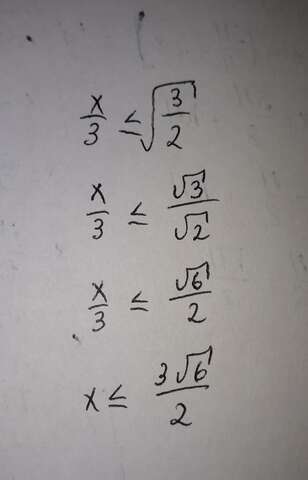 x/3 ≤ √(3/2)
x/3 ≤ √3/√2
x/3 ≤ √6/2
x ≤ 3√6/2